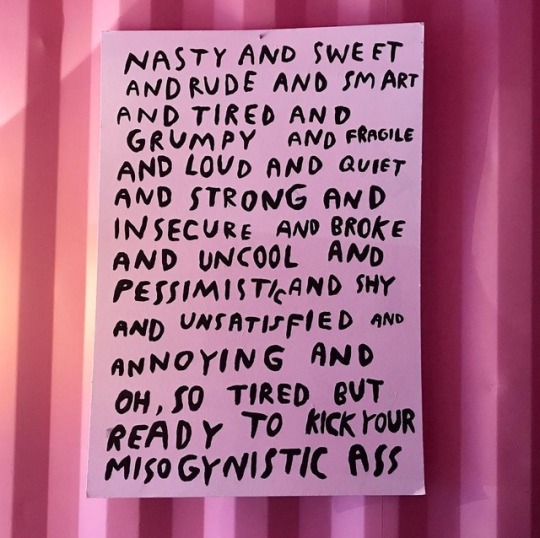 NASTY AND SWEET
AND RUDE AND SMART
AND TIRED AND
GRUMPY AND FRAGILE
AND LOUD AND QUIET
AND STRONG AND
INSECURE AND BROKE
AND UNCOOL AND
PESSIMISTIC AND SHY
AND UNSATISFIED AND
ANNOYING AND
OH, SO TIRED BUT
READY TO KICK YOUR
MISOGYNISTIC ASS